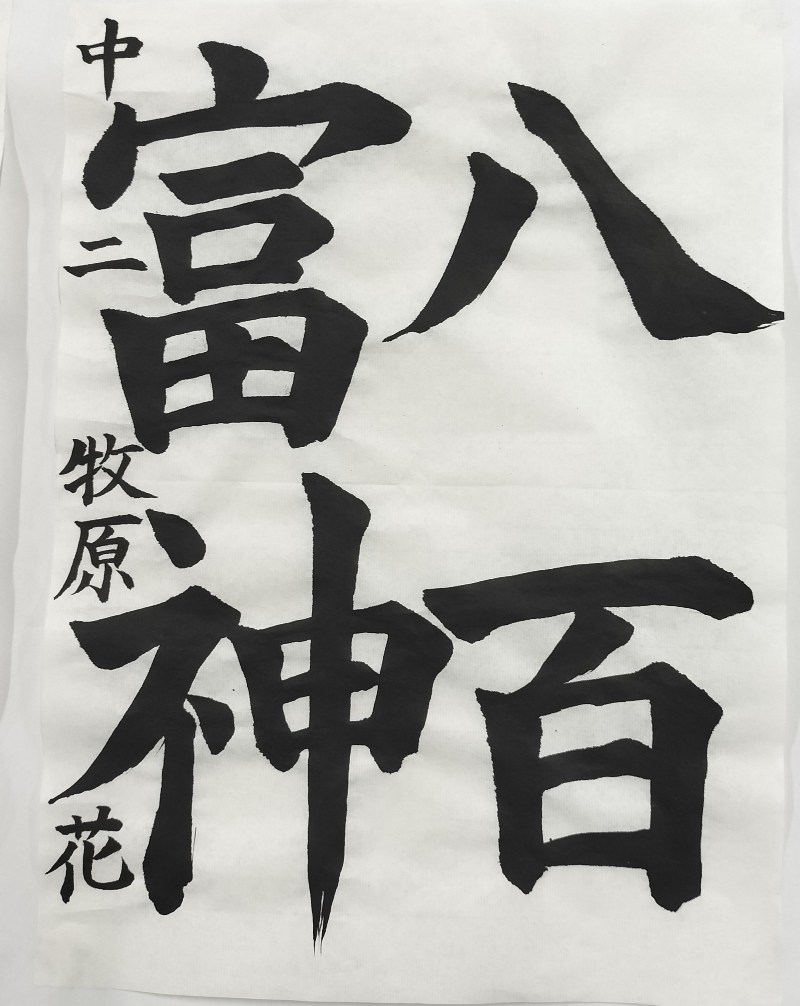 八百
富神
中二 牧原 花